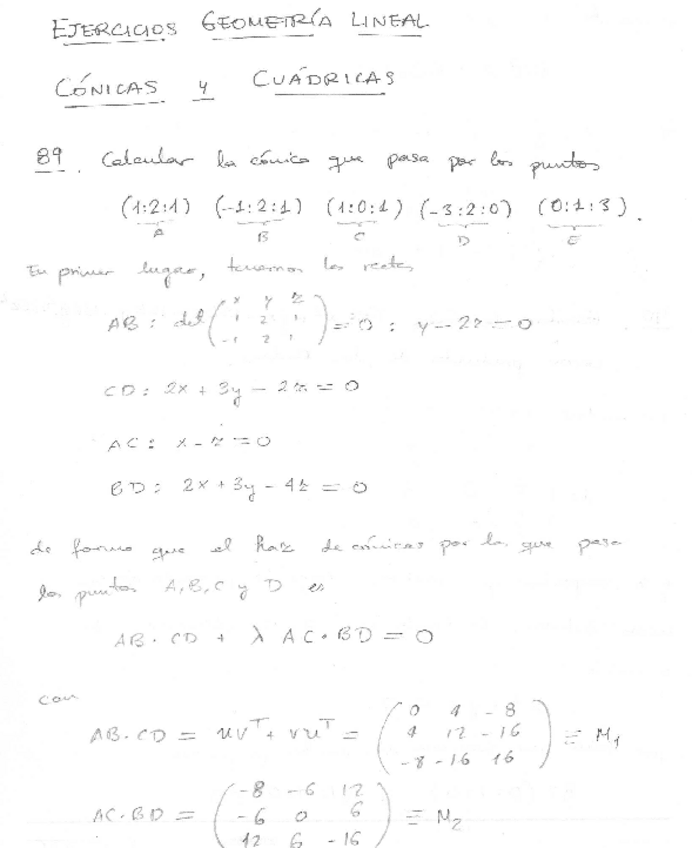 EJERCICIOS GEOMETRÍA LINEAL.
CÓNICAS y CUÁDRICAS
89. Calcular la cónica que pasa por los puntos
(1:2:1) (-1:2:1) (1:0:1) (-3:2:0) (0:1:3).
A B C D E
En primer lugar, tenemos las rectas
x y z
AB: det( 1 2 1 ) = 0 : y - 2z = 0
-1 2 1
CD: 2x + 3y - 2z = 0
AC: x - z = 0
BD: 2x + 3y - 4z = 0
de forma que el haz de cónicas por las que pasa
los puntos A, B, C y D es
AB · CD + λ AC · BD = 0
con
0 4 -8
AB · CD = uvᵀ + vuᵀ = ( 4 12 -16 ) ≡ M₁
-8 -16 16
-8 -6 12
AC · BD = ( -6 0 6 ) ≡ M₂
12 6 -16